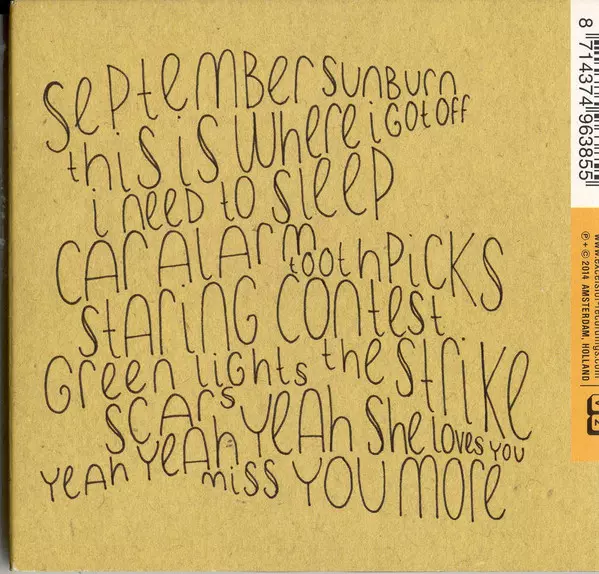 september sunburn
this is where i got off
i need to sleep
car alarm
toothpicks
staring contest
green lights the strike
scars yeah she loves you
yeah yeah
miss you more
8 714374 963855
www.excelsior-recordings.com
℗ + © 2014 AMSTERDAM, HOLLAND
V2